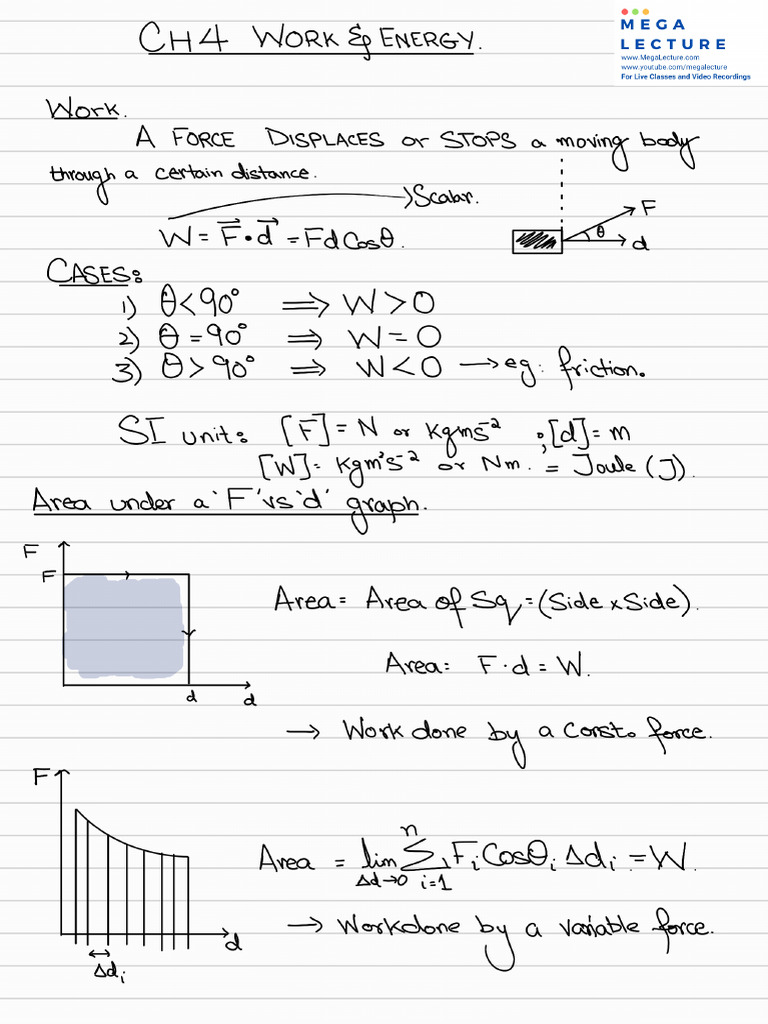 CH4 WORK & ENERGY.
MEGA
LECTURE
www.MegaLecture.com
www.youtube.com/megalecture
For Live Classes and Video Recordings
Work.
A FORCE DISPLACES or STOPS a moving body
through a certain distance.
Scalar.
W = F⃗ • d⃗ = Fd Cosθ.
F
θ
d
CASES:
1) θ < 90° ⟹ W > 0
2) θ = 90° ⟹ W = 0
3) θ > 90° ⟹ W < 0 → eg: friction.
SI unit: [F] = N or Kgms⁻² ; [d] = m
[W]: Kgm²s⁻² or Nm. = Joule (J).
Area under a 'F' vs 'd' graph.
F
F
d
d
Area = Area of Sq = (Side × Side).
Area: F·d = W.
→ Work done by a const. force.
F
d
Δdᵢ
Area = lim Δd→0 Σ i=1 n Fᵢ Cosθᵢ Δdᵢ = W.
→ Workdone by a variable force.